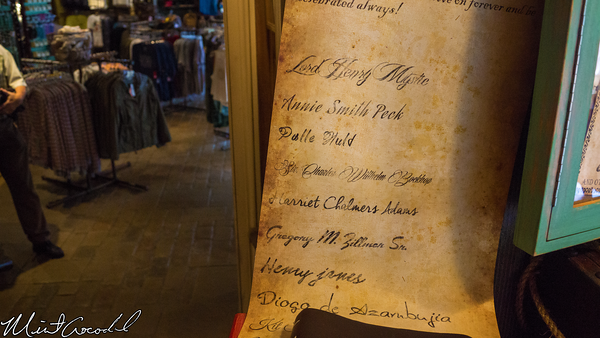 celebrated always!
forever and
Lord Henry Mystic
Annie Smith Peck
Palle Huld
Wilhelm
Harriet Chalmers Adams
Gregory M. Zillman Sr.
Henry Jones
Diogo de Azambujia
MintCrocodile